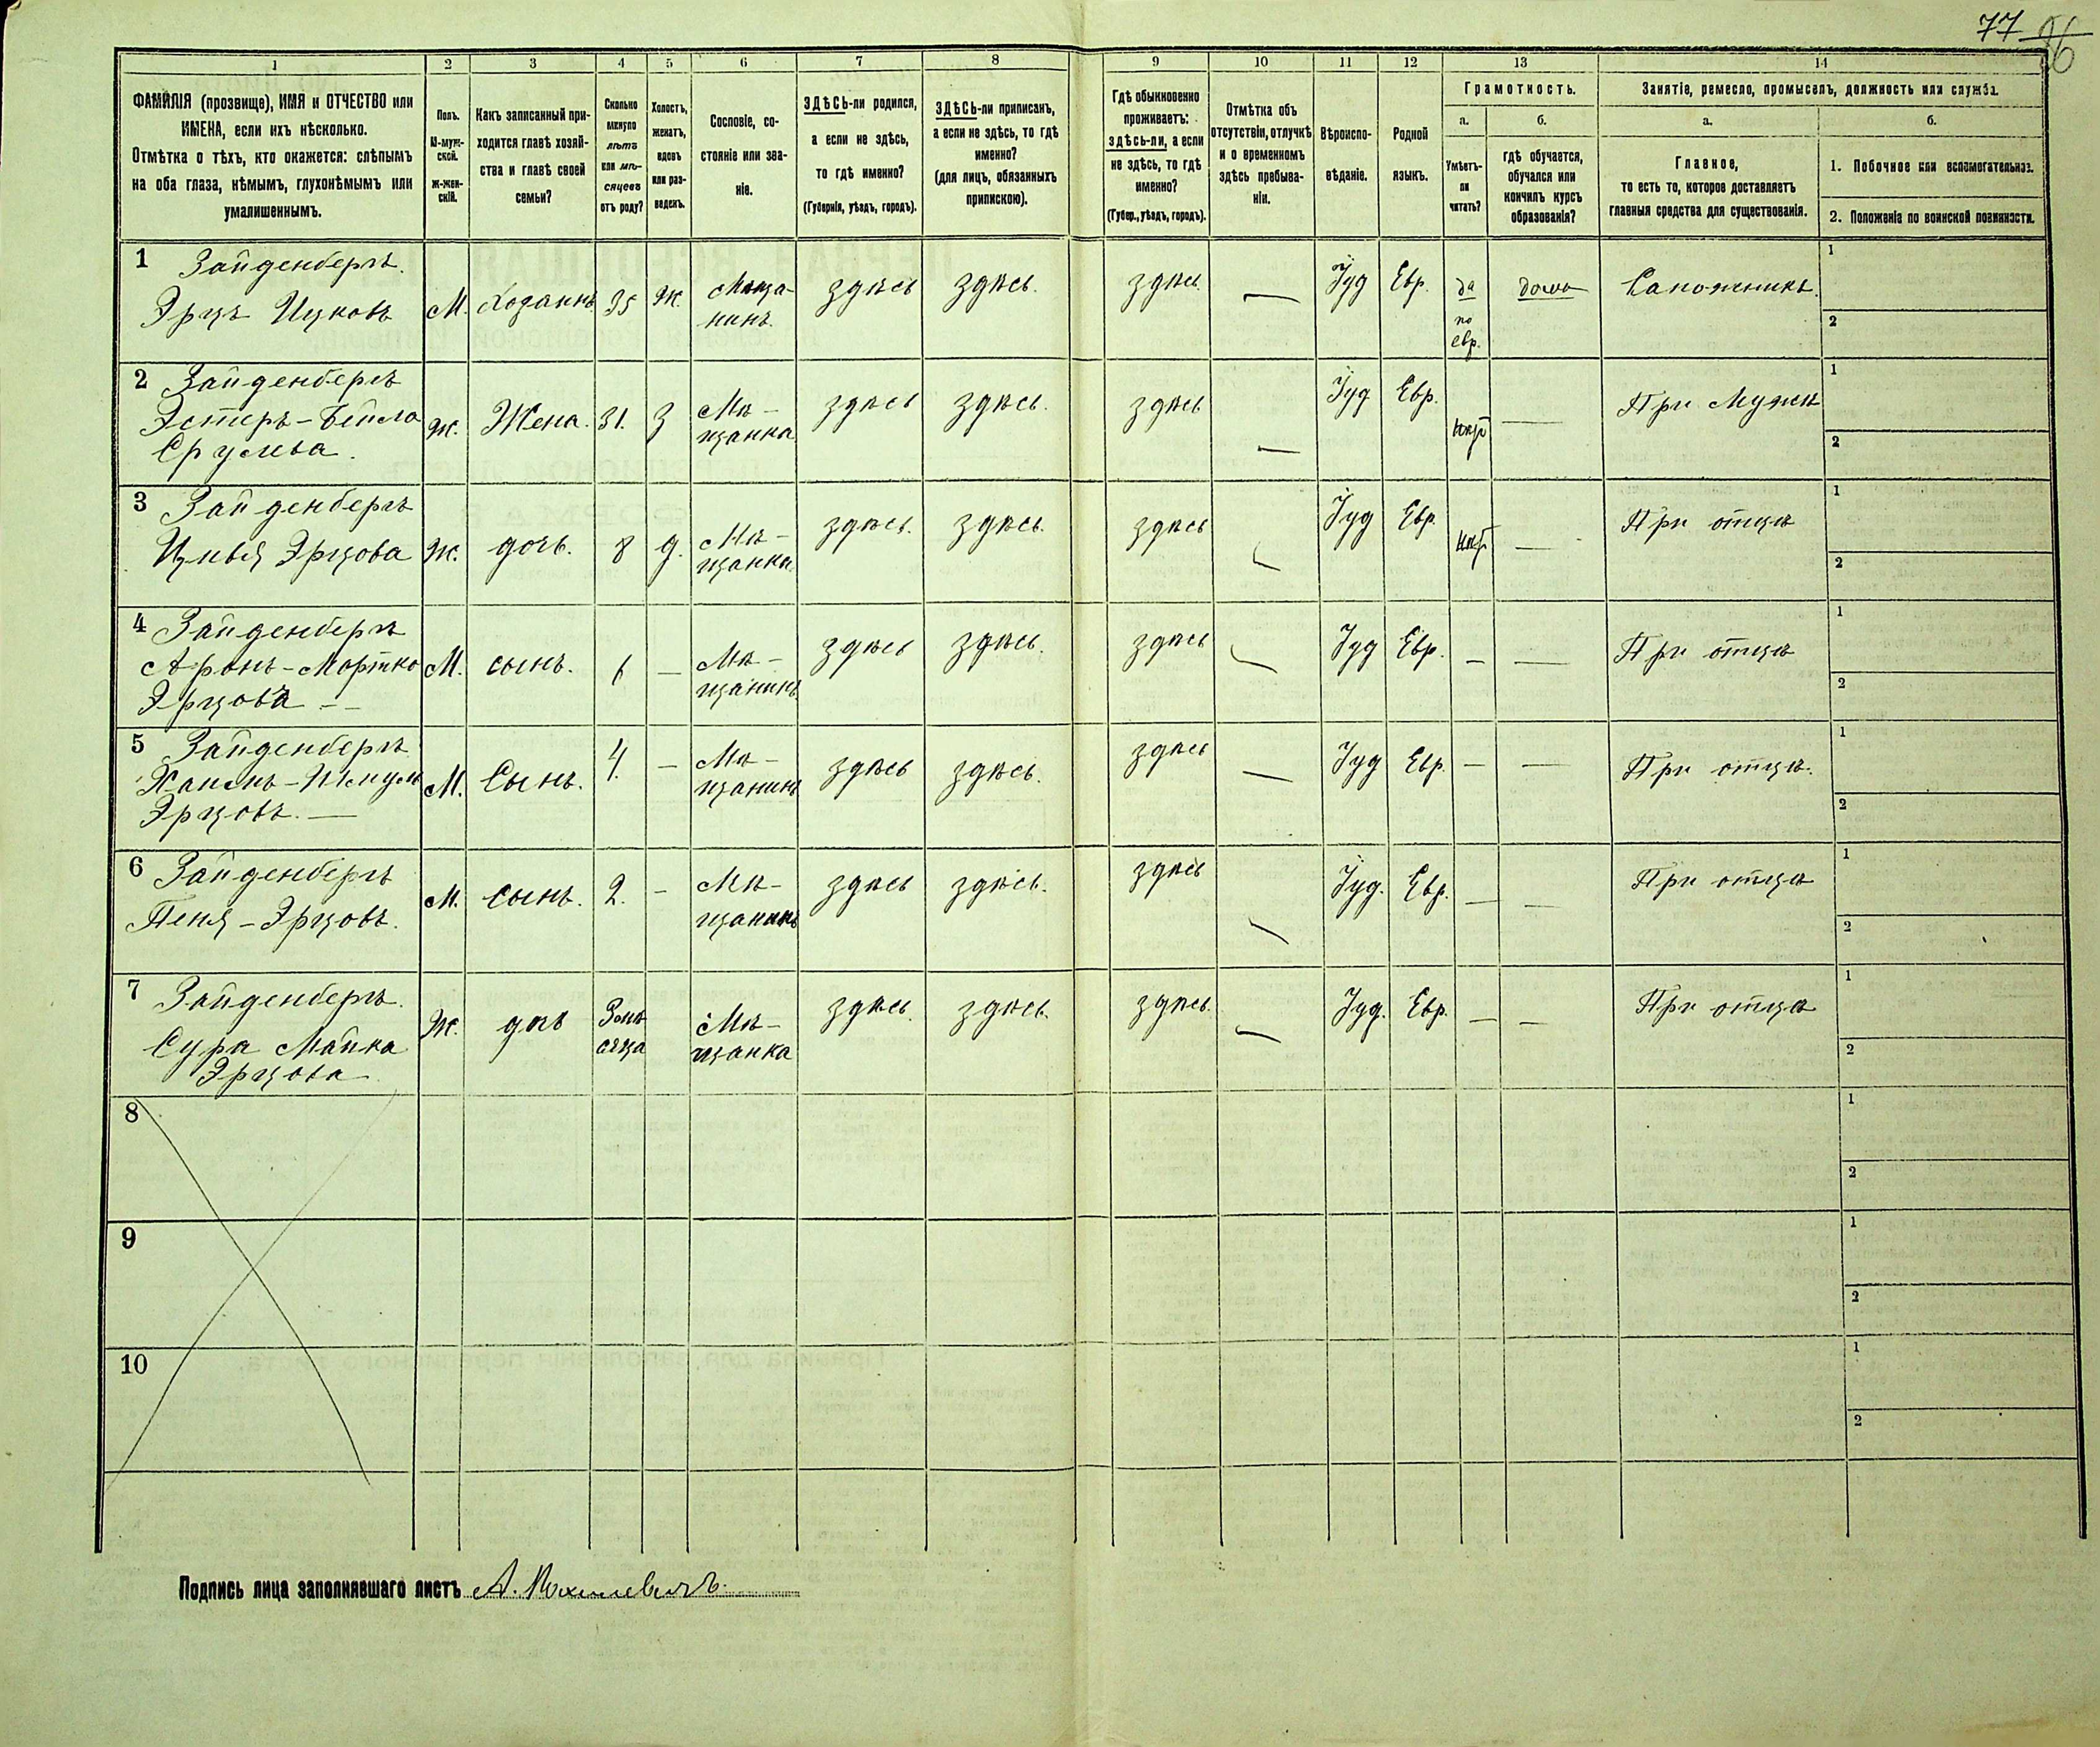 77
86
1 2 3 4 5 6 7 8 9 10 11 12 13 14
ФАМИЛІЯ (прозвище), ИМЯ и ОТЧЕСТВО или
ИМЕНА, если ихъ нѣсколько.
Отмѣтка о тѣхъ, кто окажется: слѣпымъ
на оба глаза, нѣмымъ, глухонѣмымъ или
умалишеннымъ.
Полъ.
М-муж-
ской.
Ж-жен-
скій.
Какъ записанный при-
ходится главѣ хозяй-
ства и главѣ своей
семьи?
Сколько
минуло
лѣтъ
или мѣ-
сяцевъ
отъ роду?
Холостъ,
женатъ,
вдовъ
или раз-
веденъ.
Сословіе, со-
стояніе или зва-
ніе.
ЗДѢСЬ-ли родился,
а если не здѣсь,
то гдѣ именно?
(Губернія, уѣздъ, городъ).
ЗДѢСЬ-ли приписанъ,
а если не здѣсь, то гдѣ
именно?
(для лицъ, обязанныхъ
припискою).
Гдѣ обыкновенно
проживаетъ:
здѣсь-ли, а если
не здѣсь, то гдѣ
именно?
(Губер., уѣздъ, городъ).
Отмѣтка объ
отсутствіи, отлучкѣ
и о временномъ
здѣсь пребыва-
ніи.
Вѣроиспо-
вѣданіе.
Родной
языкъ.
Грамотность.
а.
Умѣетъ-
ли
читать?
б.
гдѣ обучается,
обучался или
кончилъ курсъ
образованія?
Занятіе, ремесло, промыселъ, должность или служба.
а.
Главное,
то есть то, которое доставляетъ
главныя средства для существованія.
б.
1. Побочное или вспомогательное.
2. Положеніе по воинской повинности.
1 Зайденбергъ.
Эрцъ Ицковъ М. Хозаинъ 35 Ж. Меща-
нинъ. здѣсь здѣсь. здѣсь. — Іуд Евр. да
по
евр. дома Сапожникъ.
1
2
2 Зайденбергъ
Эстеръ-Бейла
Срулева. Ж. Жена. 31. З Мѣ-
щанка здѣсь здѣсь. здѣсь — Іуд Евр. нѣтъ — При Мужѣ
1
2
3 Зайденбергъ
Цивья Эрцова Ж. дочь. 8 д. Мѣ-
щанка. здѣсь. здѣсь. здѣсь — Іуд Евр. нѣтъ — При отцѣ
1
2
4 Зайденбергъ
Аронъ-Мортко
Эрцовъ — М. сынъ. 6 — Мѣ-
щанинъ здѣсь здѣсь. здѣсь — Іуд Евр. — — При отцѣ
1
2
5 Зайденбергъ
Эрцовъ. — М. Сынъ. 4. — Мѣ-
щанинъ здѣсь здѣсь. здѣсь — Іуд Евр. — — При отцѣ.
1
2
6 Зайденбергъ
Пеня-Эрцовъ. М. сынъ. 2. — Мѣ-
щанинъ здѣсь здѣсь. здѣсь — Іуд. Евр. — — При отцѣ
1
2
7 Зайденбергъ.
Сура Майка
Эрцова Ж. 3 мѣ-
сяца Мѣ-
щанка здѣсь. здѣсь. здѣсь. — Іуд. Евр. — — При отцѣ
1
2
8
1
2
9
1
2
10
1
2
Подпись лица заполнявшаго листъ А.